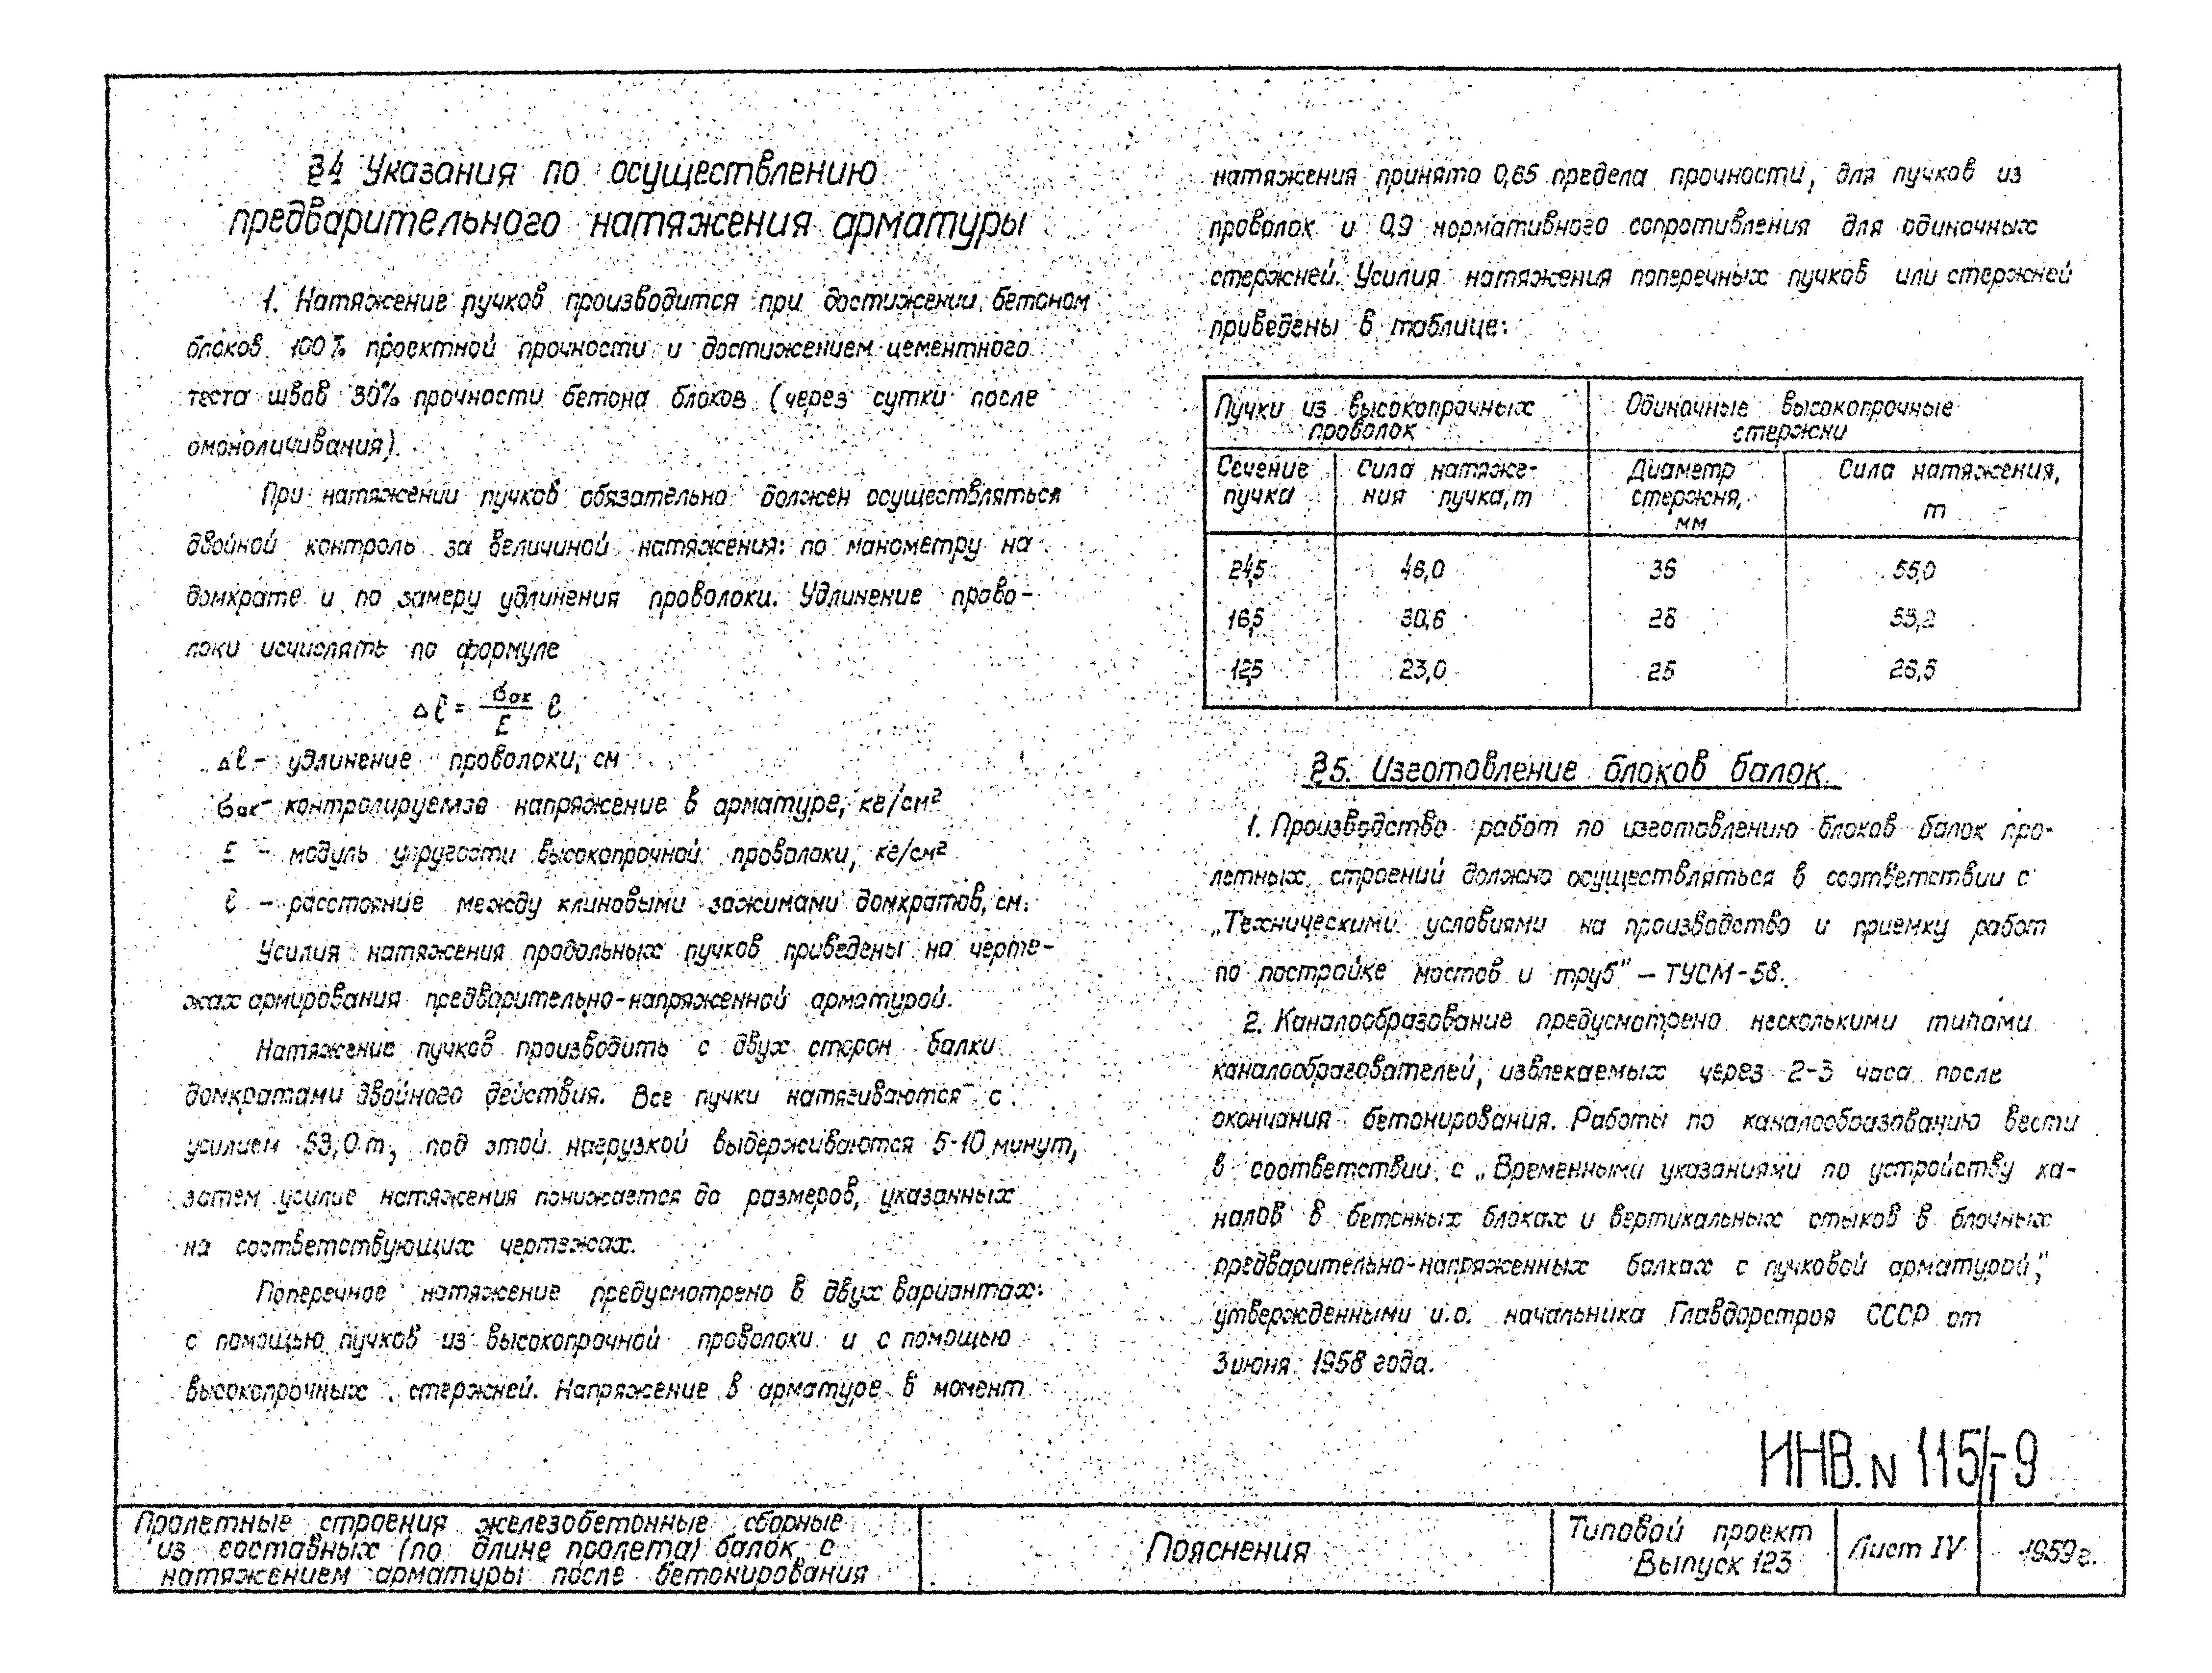 §4 Указания по осуществлению
предварительного натяжения арматуры
1. Натяжение пучков производится при достижении бетоном
блоков 100% проектной прочности и достижением цементного
теста швов 30% прочности бетона блоков (через сутки после
омоноличивания).
При натяжении пучков обязательно должен осуществляться
двойной контроль за величиной натяжения: по манометру на
домкрате и по замеру удлинения проволоки. Удлинение прово-
локи исчислять по формуле
Δℓ = σак/E ℓ
Δℓ – удлинение проволоки, см
σак – контролируемое напряжение в арматуре, кг/см²
E – модуль упругости высокопрочной проволоки, кг/см²
ℓ – расстояние между клиновыми зажимами домкратов, см.
Усилия натяжения продольных пучков приведены на черте-
жах армирования предварительно-напряженной арматурой.
Натяжение пучков производить с двух сторон балки
домкратами двойного действия. Все пучки натягиваются с
усилием 53,0 т, под этой нагрузкой выдерживаются 5-10 минут,
затем усилие натяжения понижается до размеров, указанных
на соответствующих чертежах.
Поперечное натяжение предусмотрено в двух вариантах:
с помощью пучков из высокопрочной проволоки и с помощью
высокопрочных стержней. Напряжение в арматуре в момент
натяжения принято 0,65 предела прочности, для пучков из
проволок и 0,9 нормативного сопротивления для одиночных
стержней. Усилия натяжения поперечных пучков или стержней
приведены в таблице:
Пучки из высокопрочных проволок
Одиночные высокопрочные стержни
Сечение пучка
Сила натяже-
ния пучка, т
Диаметр стержня, мм
Сила натяжения, т
24⌀5 46,0 36 55,0
16⌀5 30,6 28 33,2
12⌀5 23,0 25 26,5
§5. Изготовление блоков балок.
1. Производство работ по изготовлению блоков балок про-
летных строений должно осуществляться в соответствии с
„Техническими условиями на производство и приемку работ
по постройке мостов и труб" – ТУСМ-58.
2. Каналообразование предусмотрено несколькими типами
каналообразователей, извлекаемых через 2-3 часа после
окончания бетонирования. Работы по каналообразованию вести
в соответствии с „Временными указаниями по устройству ка-
налов в бетонных блоках и вертикальных стыков в блочных
предварительно-напряженных балках с пучковой арматурой",
утвержденными и.о. начальника Главдорстроя СССР от
3 июня 1958 года.
ИНВ. N 115/1-9
Пролетные строения железобетонные сборные
из составных (по длине пролета) балок с
натяжением арматуры после бетонирования
Пояснения
Типовой проект
Выпуск 123
Лист IV
1959 г.